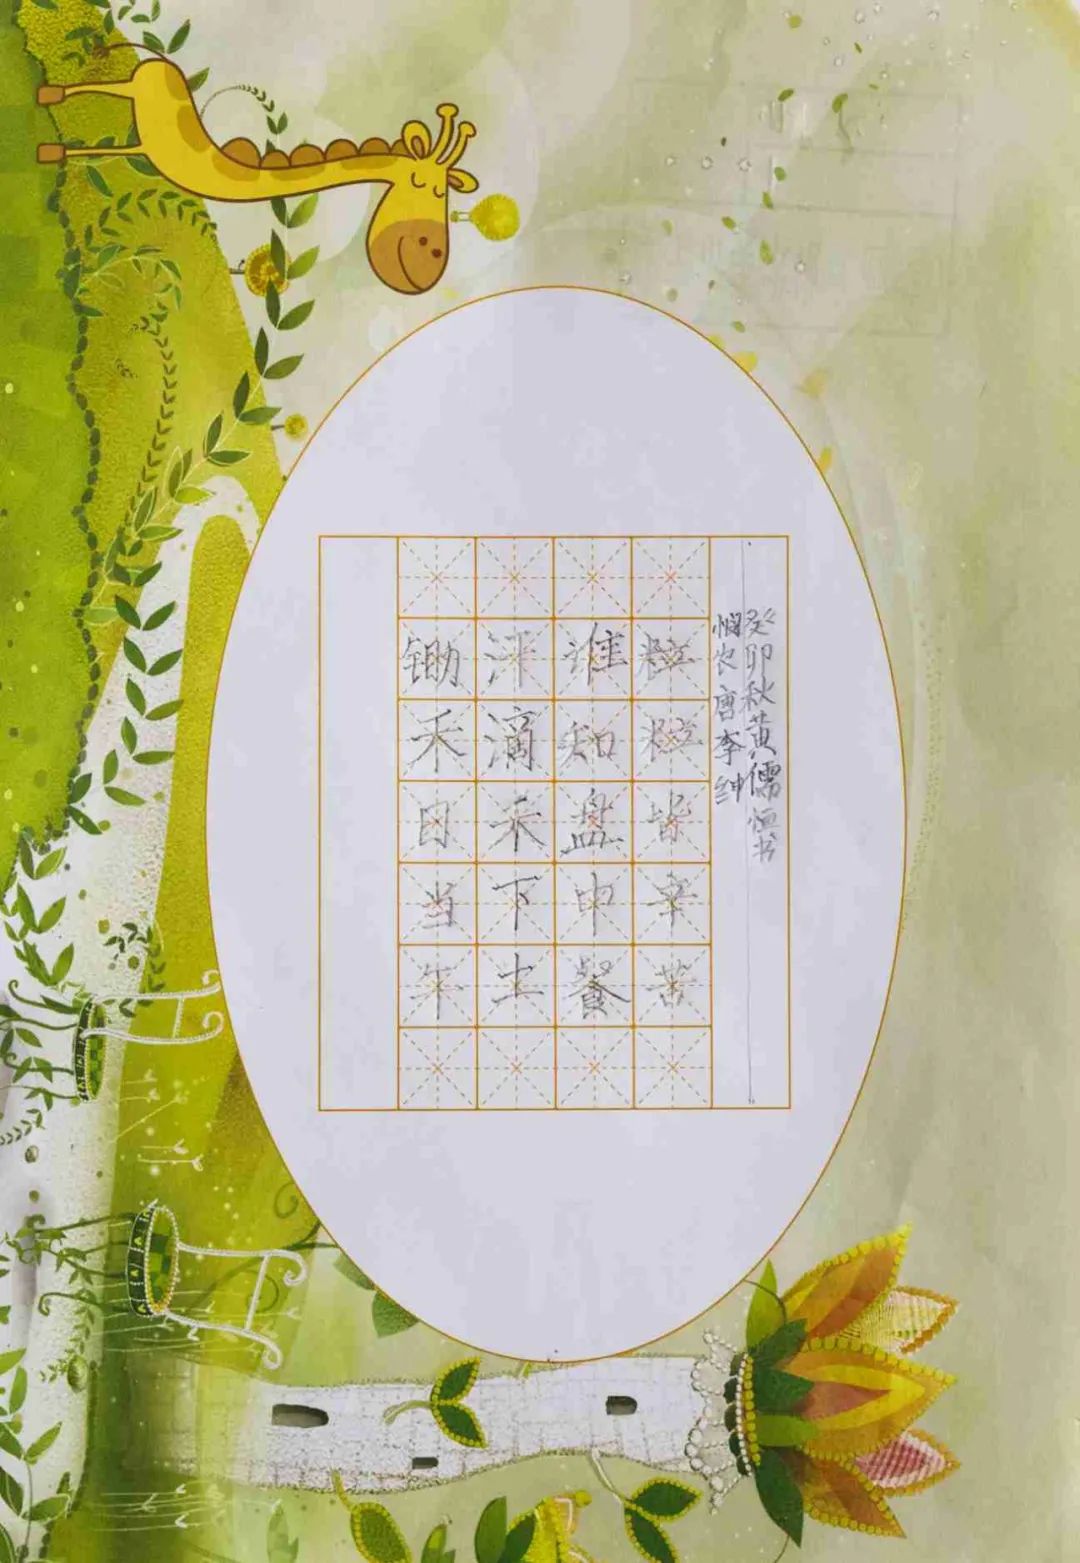 锄禾日当午
汗滴禾下土
谁知盘中餐
粒粒皆辛苦
悯农唐李绅
癸卯秋黄儒恒书